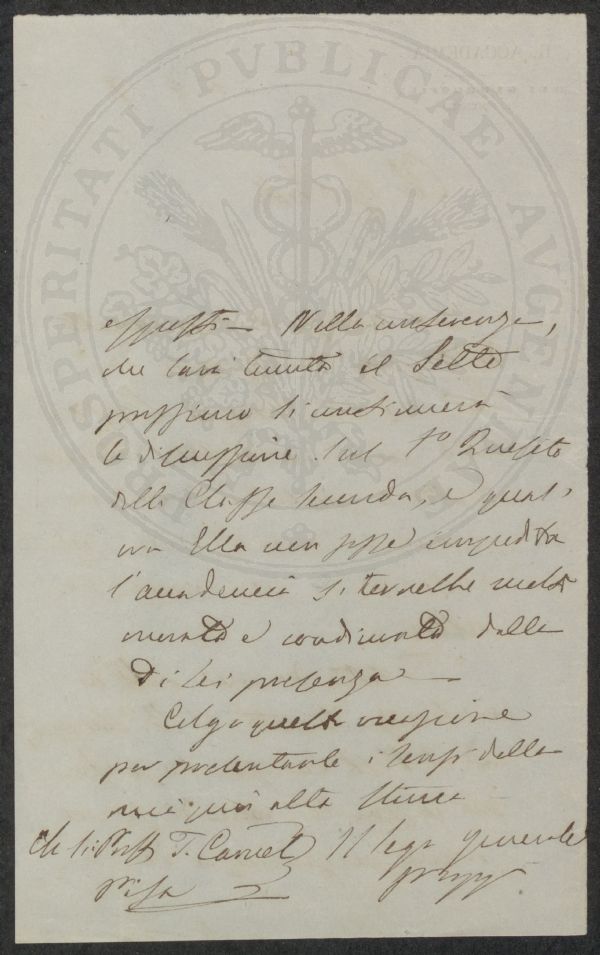 PROSPERITATI PVBLICAE AVGENDAE
R. ACCADEMIA
espressi — Nella conferenza,
che sarà tenuta il Sette
prossimo si continuerà
la discussione sul 1º Quesito
della Classe seconda, e qual,
ora Ella non fosse impedita
l'accademia si terrebbe molto
onorata e coadiuvata dalla
di Lei presenza —
Colgo questa occasione
per presentarle i sensi della
mia più alta stima
Prof T. Caruel Il Seg generale
Pisa